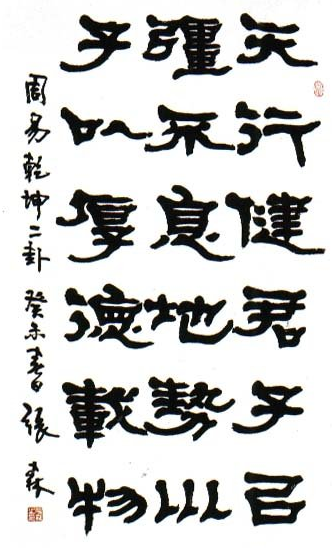 天行健君子㠯
彊不息地勢巛
子以厚德載物
周易乾坤二卦 癸未書 張森